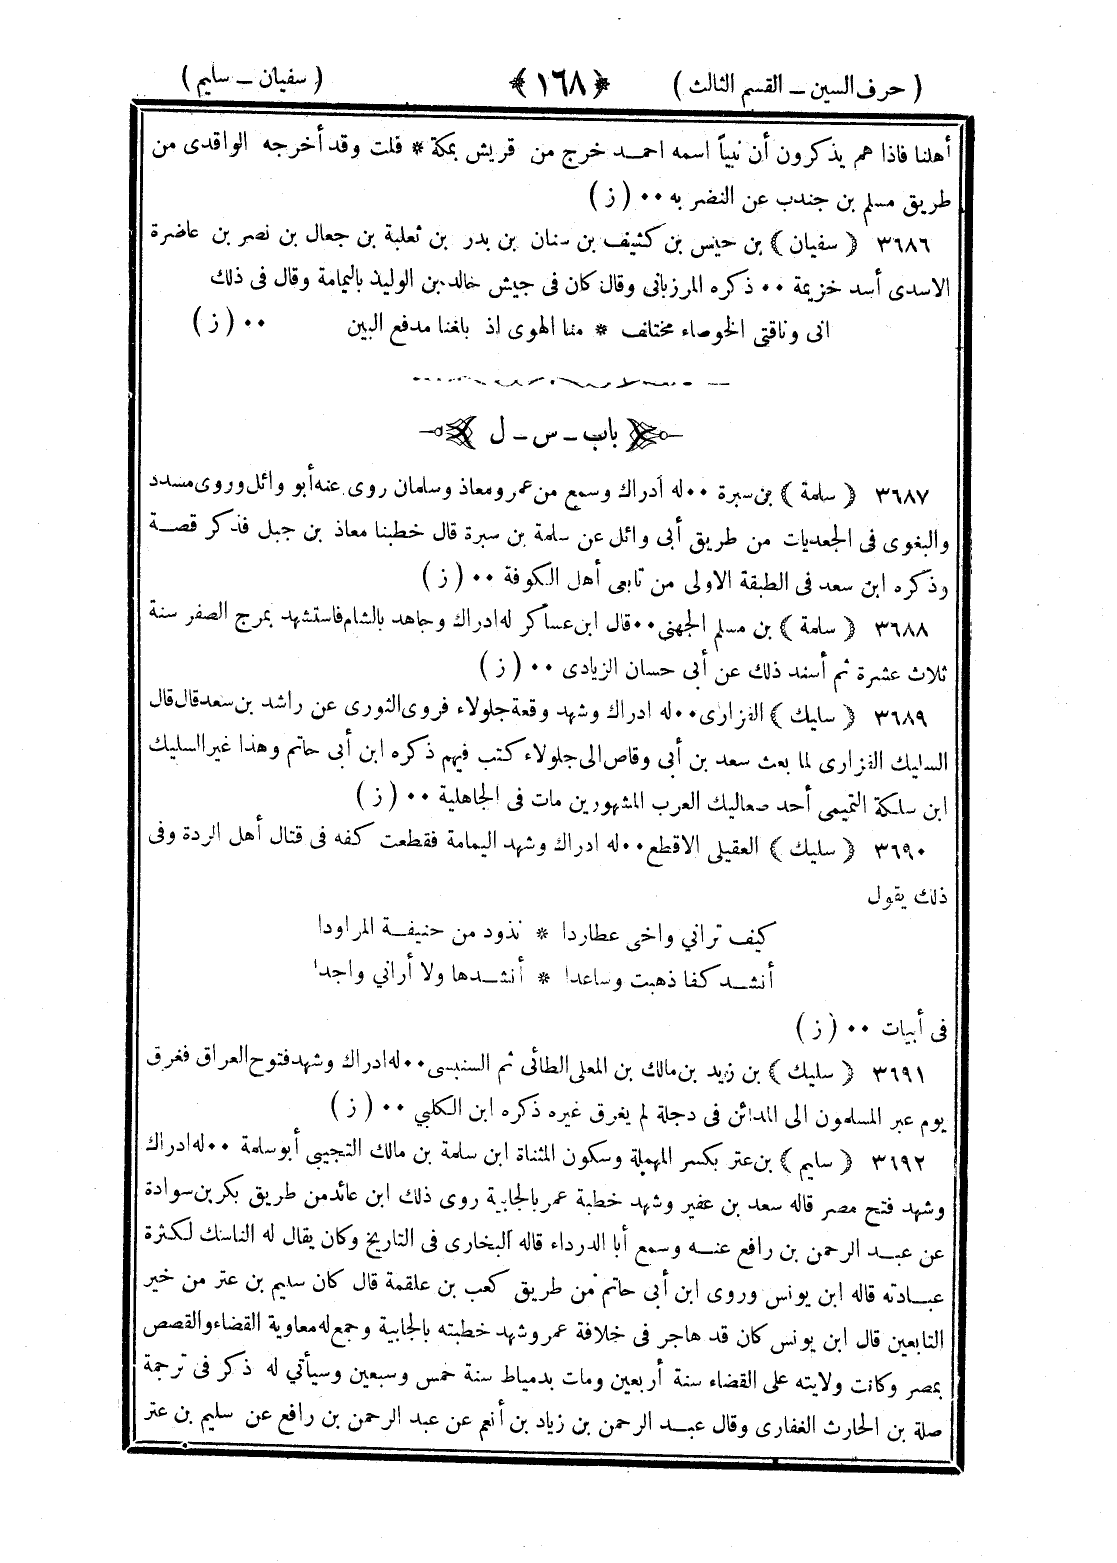 ( حرف السين ــ القسم الثالث ) ﴿ ١٦٨ ﴾ ( سفيان ــ سليم )
أهلنا فاذا هم يذكرون أن نبياً اسمه احمد خرج من قريش بمكة * قلت وقد أخرجه الواقدى من
طريق مسلم بن جندب عن النضر به ٠٠ ( ز )
٣٦٨٦ ﴿ سفيان ﴾ بن حيس بن كثيف بن سنان بن بدر بن ثعلبة بن جعال بن نصر بن عاضرة
الاسدى أسد خزيمة ٠٠ ذكره المرزبانى وقال كان فى جيش خالد بن الوليد باليمامة وقال فى ذلك
انى وناقتى الخوصاء مختلف * منا الهوى اذ بلغنا مدفع البين ٠٠ ( ز )
باب - س - ل
٣٦٨٧ ﴿ سلمة ﴾ بن سبرة ٠٠ له أدراك وسمع من عمر ومعاذ وسلمان روى عنه أبو وائل وروى مسدد
والبغوى فى الجعديات من طريق أبى وائل عن سلمة بن سبرة قال خطبنا معاذ بن جبل فذكر قصة
وذكره ابن سعد فى الطبقة الاولى من تابعى أهل الكوفة ٠٠ ( ز )
٣٦٨٨ ﴿ سلمة ﴾ بن مسلم الجهنى ٠٠ قال ابن عساكر له ادراك وجاهد بالشام فاستشهد بمرج الصفر سنة
ثلاث عشرة ثم أسند ذلك عن أبى حسان الزيادى ٠٠ ( ز )
٣٦٨٩ ﴿ سليك ﴾ الفزارى ٠٠ له ادراك وشهد وقعة جلولاء فروى الثورى عن راشد بن سعد قال قال
السليك الفزارى لما بعث سعد بن أبى وقاص الى جلولاء كتب فيهم ذكره ابن أبى حاتم وهذا غير السليك
ابن سلكة التميمى أحد صعاليك العرب المشهورين مات فى الجاهلية ٠٠ ( ز )
٣٦٩٠ ﴿ سليك ﴾ العقيلى الاقطع ٠٠ له ادراك وشهد اليمامة فقطعت كفه فى قتال أهل الردة وفى
ذلك يقول
كيف تراني واخى عطاردا * نذود من حنيفة المراودا
أنشد كفا ذهبت وساعدا * أنشدها ولا أراني واجدا
فى أبيات ٠٠ ( ز )
٣٦٩١ ﴿ سليك ﴾ بن زيد بن مالك بن المعلى الطائى ثم السنبسى ٠٠ له ادراك وشهد فتوح العراق فغرق
يوم عبر المسلمون الى المدائن فى دجلة لم يغرق غيره ذكره ابن الكلبي ٠٠ ( ز )
٣٦٩٢ ﴿ سليم ﴾ بن عتر بكسر المهملة وسكون المثناة ابن سلمة بن مالك التجيبى أبو سلمة ٠٠ له ادراك
وشهد فتح مصر قاله سعد بن عفير وشهد خطبة عمر بالجابية روى ذلك ابن عائد من طريق بكر بن سوادة
عن عبد الرحمن بن رافع عنه وسمع أبا الدرداء قاله البخارى فى التاريخ وكان يقال له الناسك لكثرة
عبادته قاله ابن يونس وروى ابن أبى حاتم من طريق كعب بن علقمة قال كان سليم بن عتر من خير
التابعين قال ابن يونس كان قد هاجر فى خلافة عمر وشهد خطبته بالجابية وجمع له معاوية القضاء والقصص
بمصر وكانت ولايته على القضاء سنة أربعين ومات بدمياط سنة خمس وسبعين وسيأتي له ذكر فى ترجمة
صلة بن الحارث الغفارى وقال عبد الرحمن بن زياد بن أنعم عن عبد الرحمن بن رافع عن سليم بن عتر